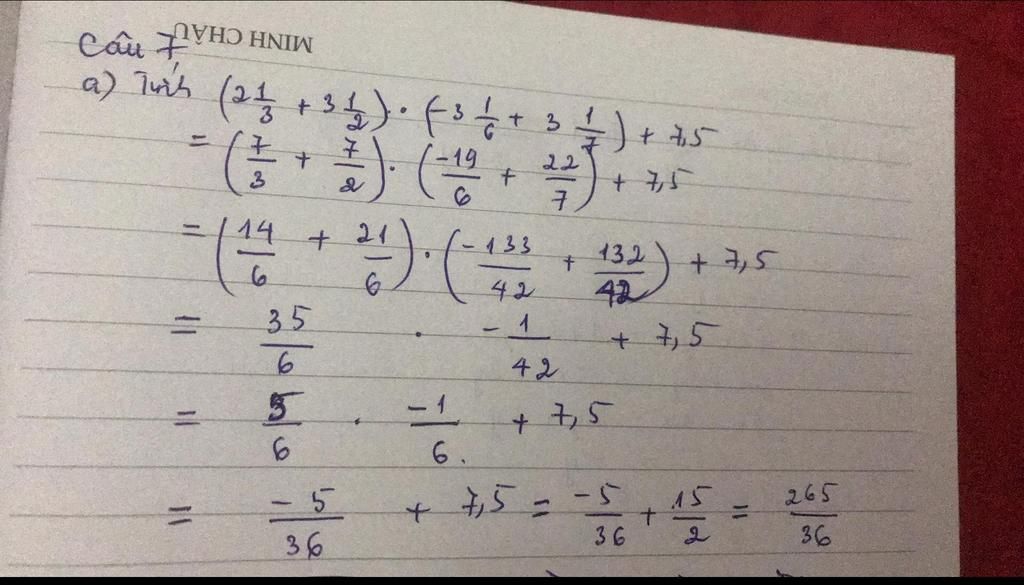 MINH CHÂU
Câu 7
a) Tính (2 1/3 + 3 1/2) . (-3 1/6 + 3 1/7) + 7,5
= (7/3 + 7/2) . (-19/6 + 22/7) + 7,5
= (14/6 + 21/6) . (-133/42 + 132/42) + 7,5
= 35/6 . -1/42 + 7,5
= 5/6 . -1/6 + 7,5
= -5/36 + 7,5 = -5/36 + 15/2 = 265/36